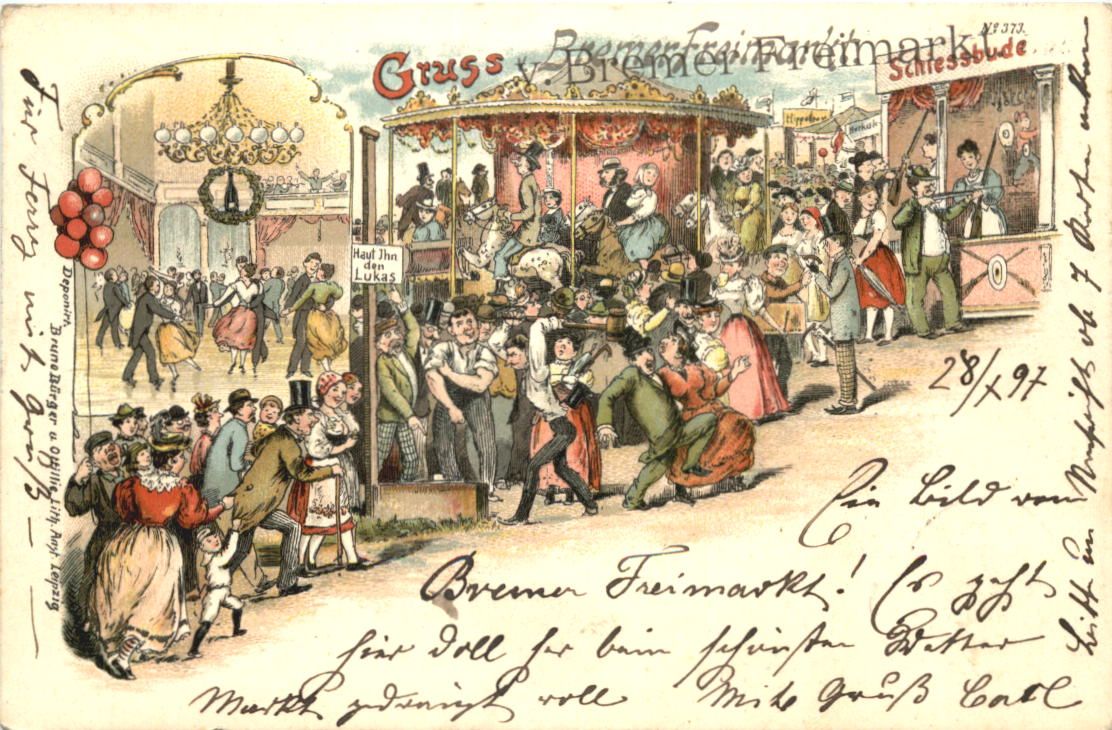 Nº 373.
Gruss v. Bremer Freimarkt
Schiessbude
Hippodrom
Herkules
Haut Ihn
den
Lukas
Deponirt.
Bruno Bürger u. Ottilie, lith. Anst. Leipzig
28/X 97
Ein Bild vom
Bremer Freimarkt! Es geht
hier doll her beim schönsten Wetter
Markt gedrängt voll Mit Gruß Carl
Für Ferry mit Gruß